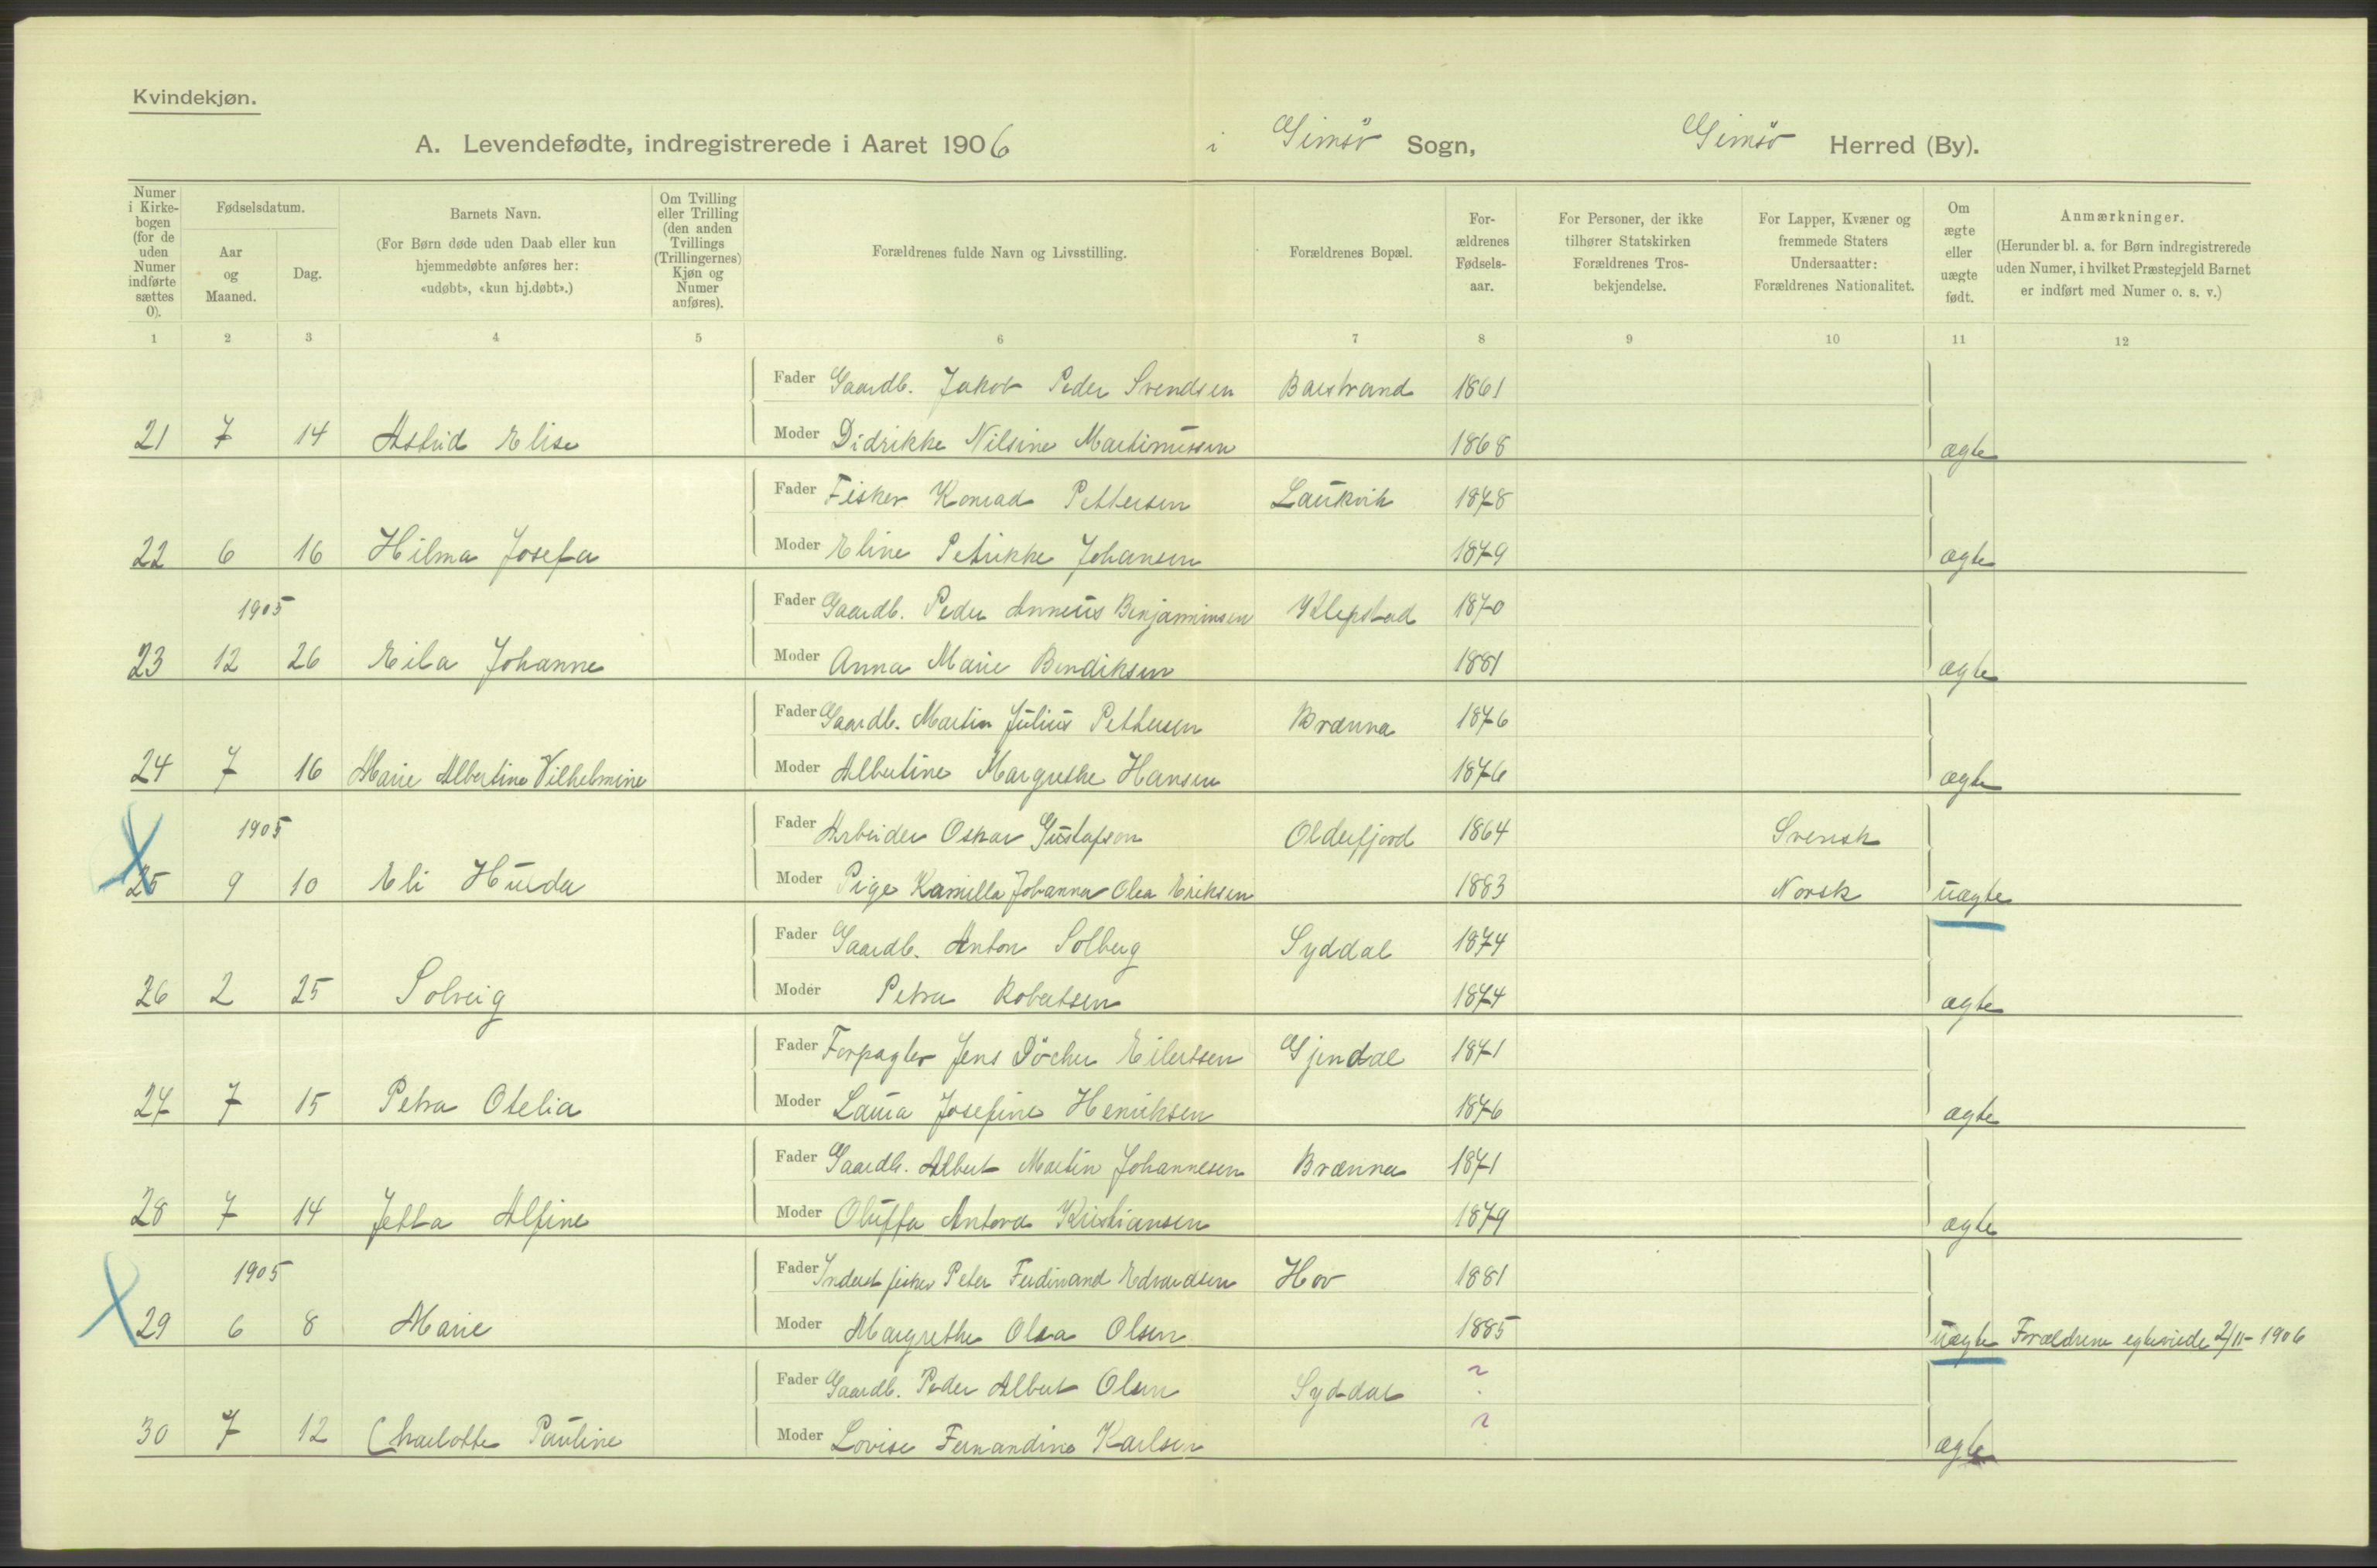 Kvindekjøn.
A. Levendefødte, indregistrerede i Aaret 1906 i Gimsö Sogn, Gimsö Herred (By).
Numer i Kirkebogen (for de uden Numer indførte sættes 0).
Fødselsdatum.
Aar og Maaned.
Dag.
Barnets Navn.
(For Børn døde uden Daab eller kun hjemmedøbte anføres her: «udøbt», «kun hj.døbt».)
Om Tvilling eller Trilling (den anden Tvillings (Trillingernes) Kjøn og Numer anføres).
Forældrenes fulde Navn og Livsstilling.
Forældrenes Bopæl.
Forældrenes Fødselsaar.
For Personer, der ikke tilhører Statskirken Forældrenes Trosbekjendelse.
For Lapper, Kvæner og fremmede Staters Undersaatter: Forældrenes Nationalitet.
Om ægte eller uægte født.
Anmærkninger.
(Herunder bl. a. for Børn indregistrerede uden Numer, i hvilket Præstegjeld Barnet er indført med Numer o. s. v.)
1 2 3 4 5 6 7 8 9 10 11 12
Fader Gaardb. Jakob Peder Svendsen Barstrand 1861
21 7 14 Astrid Elise Moder Didrikke Nilsine Martinussen 1868 ægte
Fader Fisker Konrad Pettersen Laukvik 1878
22 6 16 Hilma Josefa Moder Eline Petrikke Johansen 1879 ægte
1905 Fader Gaardb. Peder Anneus Benjaminsen Klepstad 1870
23 12 26 Eila Johanne Moder Anna Marie Bendiksen 1881 ægte
Fader Gaardb. Martin Julius Pettersen Brænna 1876
24 7 16 Marie Albertine Vilhelmine Moder Albertine Margrethe Hansen 1876 ægte
1905 Fader Arbeider Oskar Gustafson Olderfjord 1864 Svensk
25 9 10 Eli Hulda Moder Pige Kamilla Johanna Olea Eriksen 1883 Norsk uægte
Fader Gaardb. Anton Solberg Syddal 1874
26 2 25 Solveig Moder Petra Robertsen 1874 ægte
Fader Forpagter Jens Döcher Eilertsen Gjendal 1871
27 7 15 Petra Otelia Moder Laura Josefine Henriksen 1876 ægte
Fader Gaardb. Albert Martin Johannesen Brænna 1871
28 7 14 Jetta Alfine Moder Oluffa Antora Kristiansen 1879 ægte
1905 Fader Inderst fisker Peter Ferdinand Edvardsen Hov 1881
29 6 8 Marie Moder Margrethe Olea Olsen 1885 uægte Forældrene egteviede 2/11-1906
Fader Gaardb. Peder Albert Olsen Syddal ?
30 7 12 Charlotte Pauline Moder Lovise Fernandine Karlsen ? ægte